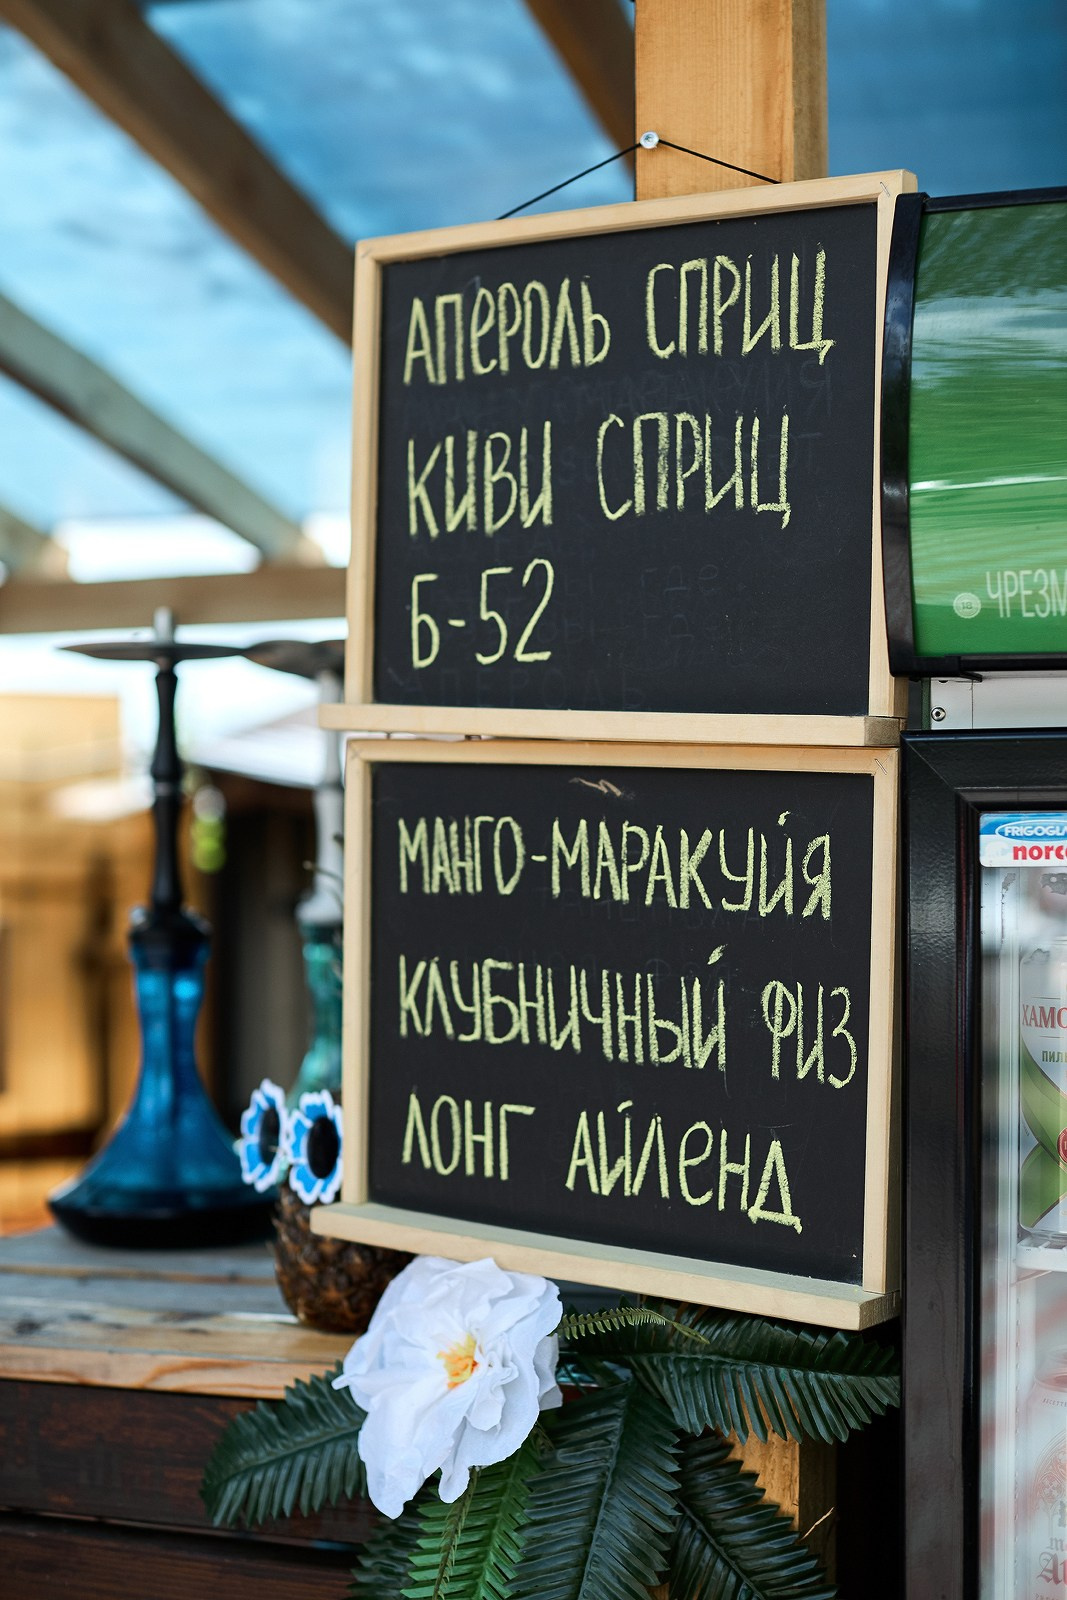 АПЕРОЛЬ СПРИЦ
КИВИ СПРИЦ
Б-52
МАНГО-МАРАКУЙЯ
КЛУБНИЧНЫЙ ФИЗ
ЛОНГ АЙЛЕНД
18
ЧРЕЗМ
FRIGOGLA
norc
ХАМО
ПИЛ